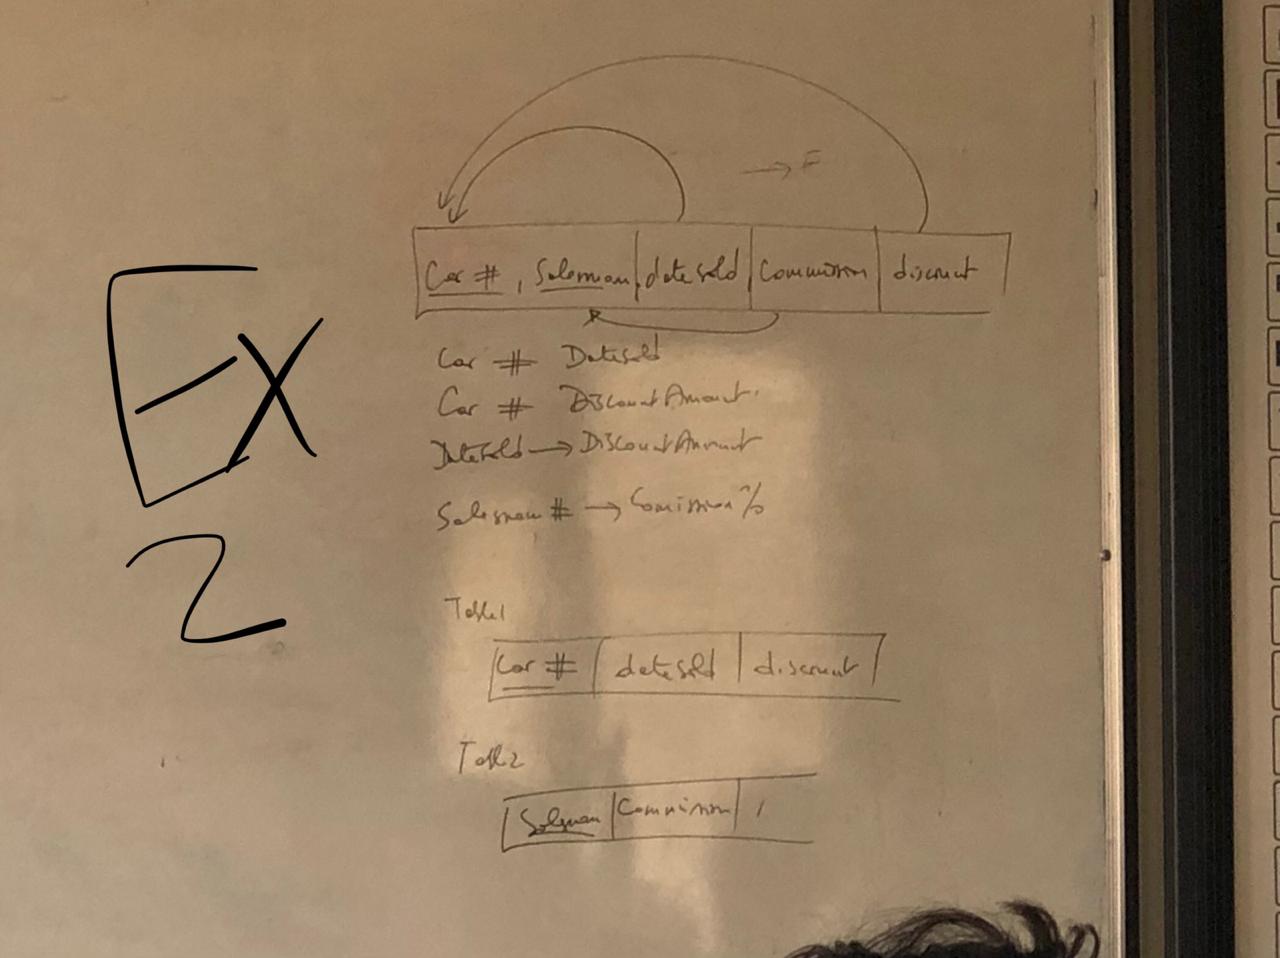 EX
2
→ F
Car #, Salesman datesold Commission discount
Car # Datesold
Car # DiscountAmount.
Datesold → DiscountAmount
Salesman # → Comission %
Table1
Car # datesold discount
Table2
Salesman Commission